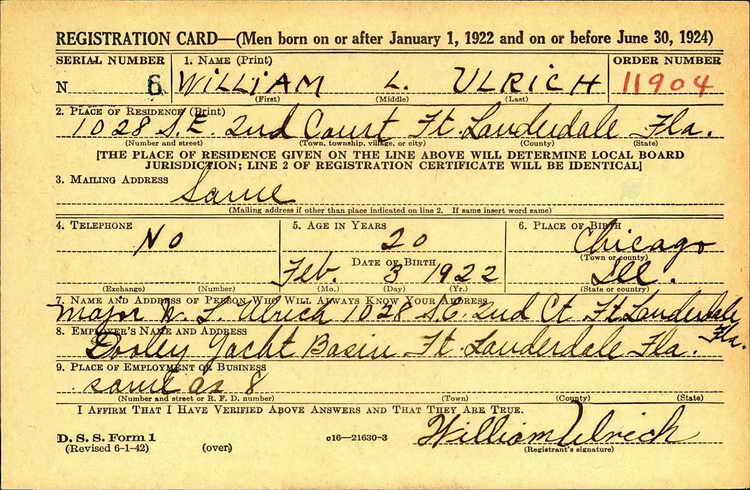 REGISTRATION CARD—(Men born on or after January 1, 1922 and on or before June 30, 1924)
SERIAL NUMBER 1. NAME (Print) ORDER NUMBER
N 6 WILLIAM L. ULRICH 11904
(First) (Middle) (Last)
2. PLACE OF RESIDENCE (Print)
1028 S.E. 2nd Court Ft. Lauderdale Fla.
(Number and street) (Town, township, village, or city) (County) (State)
[THE PLACE OF RESIDENCE GIVEN ON THE LINE ABOVE WILL DETERMINE LOCAL BOARD
JURISDICTION; LINE 2 OF REGISTRATION CERTIFICATE WILL BE IDENTICAL]
3. MAILING ADDRESS
Same
(Mailing address if other than place indicated on line 2. If same insert word same)
4. TELEPHONE 5. AGE IN YEARS 6. PLACE OF BIRTH
No 20 Chicago
(Town or county)
DATE OF BIRTH
Feb. 3 1922 Ill.
(Exchange) (Number) (Mo.) (Day) (Yr.) (State or country)
7. NAME AND ADDRESS OF PERSON WHO WILL ALWAYS KNOW YOUR ADDRESS
Major W. L. Ulrich 1028 S.E. 2nd Ct. Ft Lauderdale Fla.
8. EMPLOYER'S NAME AND ADDRESS
Dooley Yacht Basin Ft. Lauderdale Fla.
9. PLACE OF EMPLOYMENT OR BUSINESS
same as 8
(Number and street or R. F. D. number) (Town) (County) (State)
I AFFIRM THAT I HAVE VERIFIED ABOVE ANSWERS AND THAT THEY ARE TRUE.
D. S. S. Form 1
(Revised 6-1-42) (over) c16-21630-3 William Ulrich
(Registrant's signature)